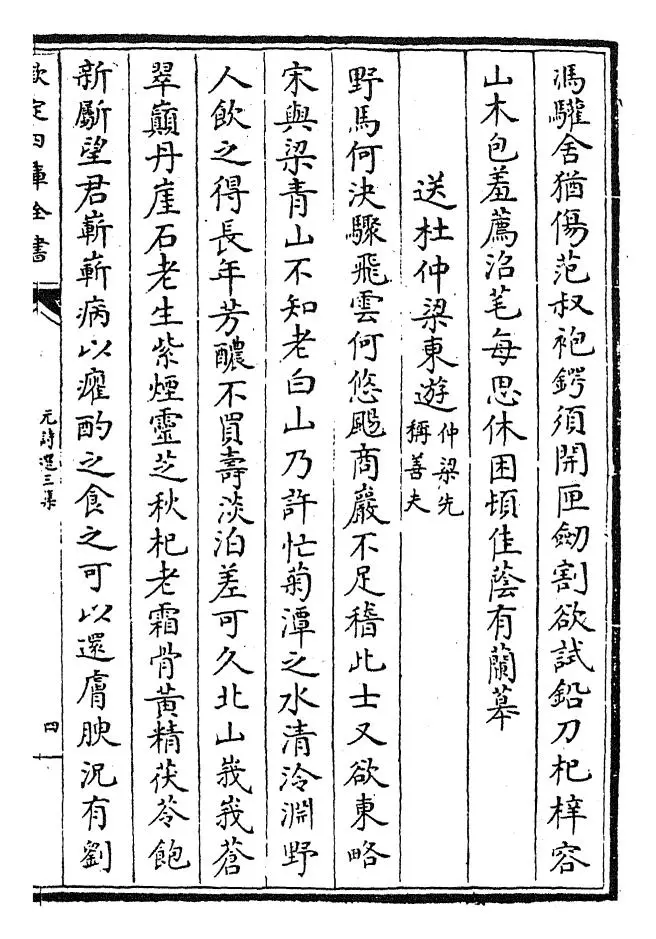 馮驩舍猶傷范叔袍鍔須開匣劒割欲試鉛刀杞梓容
山木包羞薦沼芼每思休困頓佳蔭有蘭臯
送杜仲梁東遊仲梁先
稱善夫
野馬何決驟飛雲何悠颺商巖不足稽此士又欲東略
宋與梁青山不知老白山乃許忙菊潭之水清泠淵野
人飲之得長年芳醲不買壽淡泊差可久北山峩峩蒼
翠巔丹崖石老生紫煙靈芝秋杞老霜骨黄精茯苓飽
新斸望君嶄嶄病以癯酌之食之可以還膚腴況有劉
欽定四庫全書
元詩選三集
四